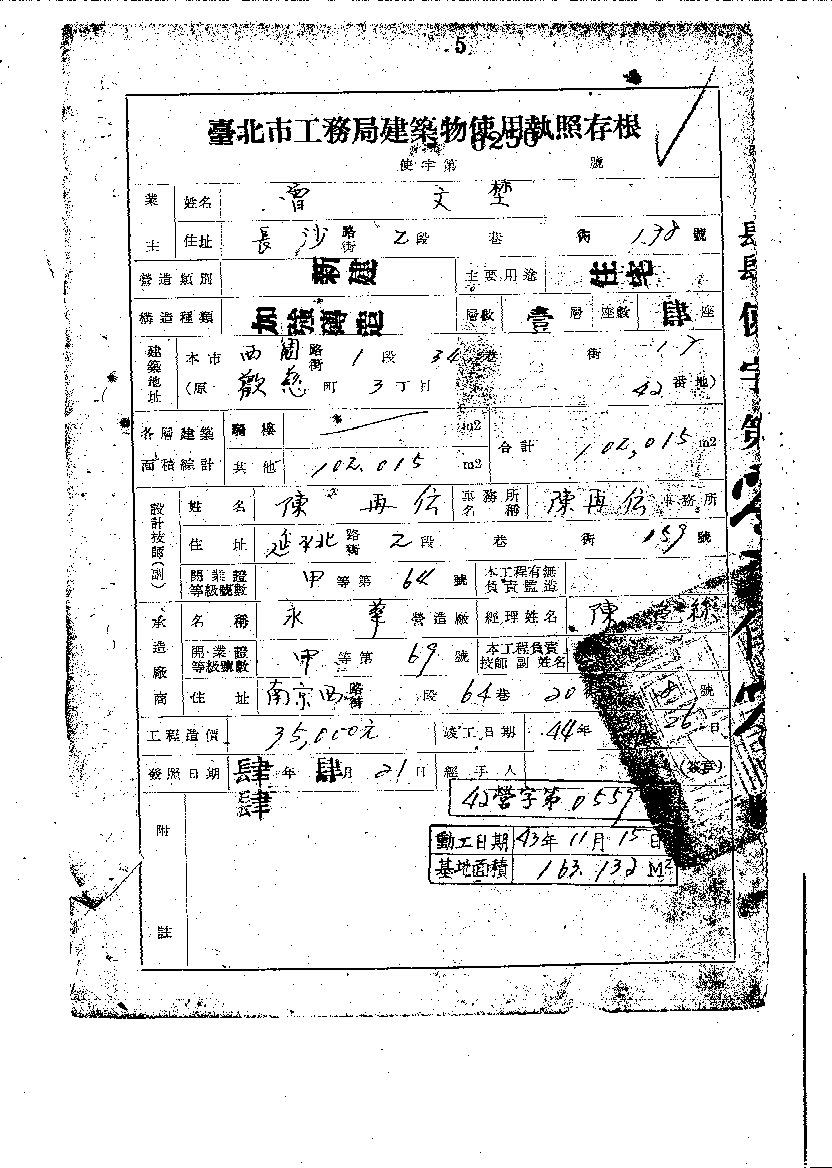 5
臺北市工務局建築物使用執照存根
使字第 0250 號
業主 姓名 曾文
住址 長沙 路街 2段 巷 衖 138 號
營造類別 新建 主要用途 住宅
構造種類 加強磚造 層數 壹 層 座數 肆 座
建築地址 本市 西園 路街 1 段 34 巷 衖 17
(原 歡慈 町 3 丁目 42 番地)
各層建築面積綜計 騎樓 m2 合計 102,015 m2
其他 102.015 m2
設計技師(副) 姓名 陳再 事務所名稱 陳再 事務所
住址 延平北 路街 2段 巷 衖 159 號
開業證等級號數 甲 等第 64 號 本工程有無負責監造
承造廠商 名稱 永華 營造廠 經理姓名 陳
開業證等級號數 甲 等第 69 號 本工程負責技師副姓名
住址 南京西 路街 段 64 巷 20 號
工程造價 35,000元 竣工日期 44年 26日
發照日期 肆肆 年 肆月 21日 經手人 (簽章)
42營字第0559
動工日期 43年11月15日
基地面積 163.132 M²
附註
使字第